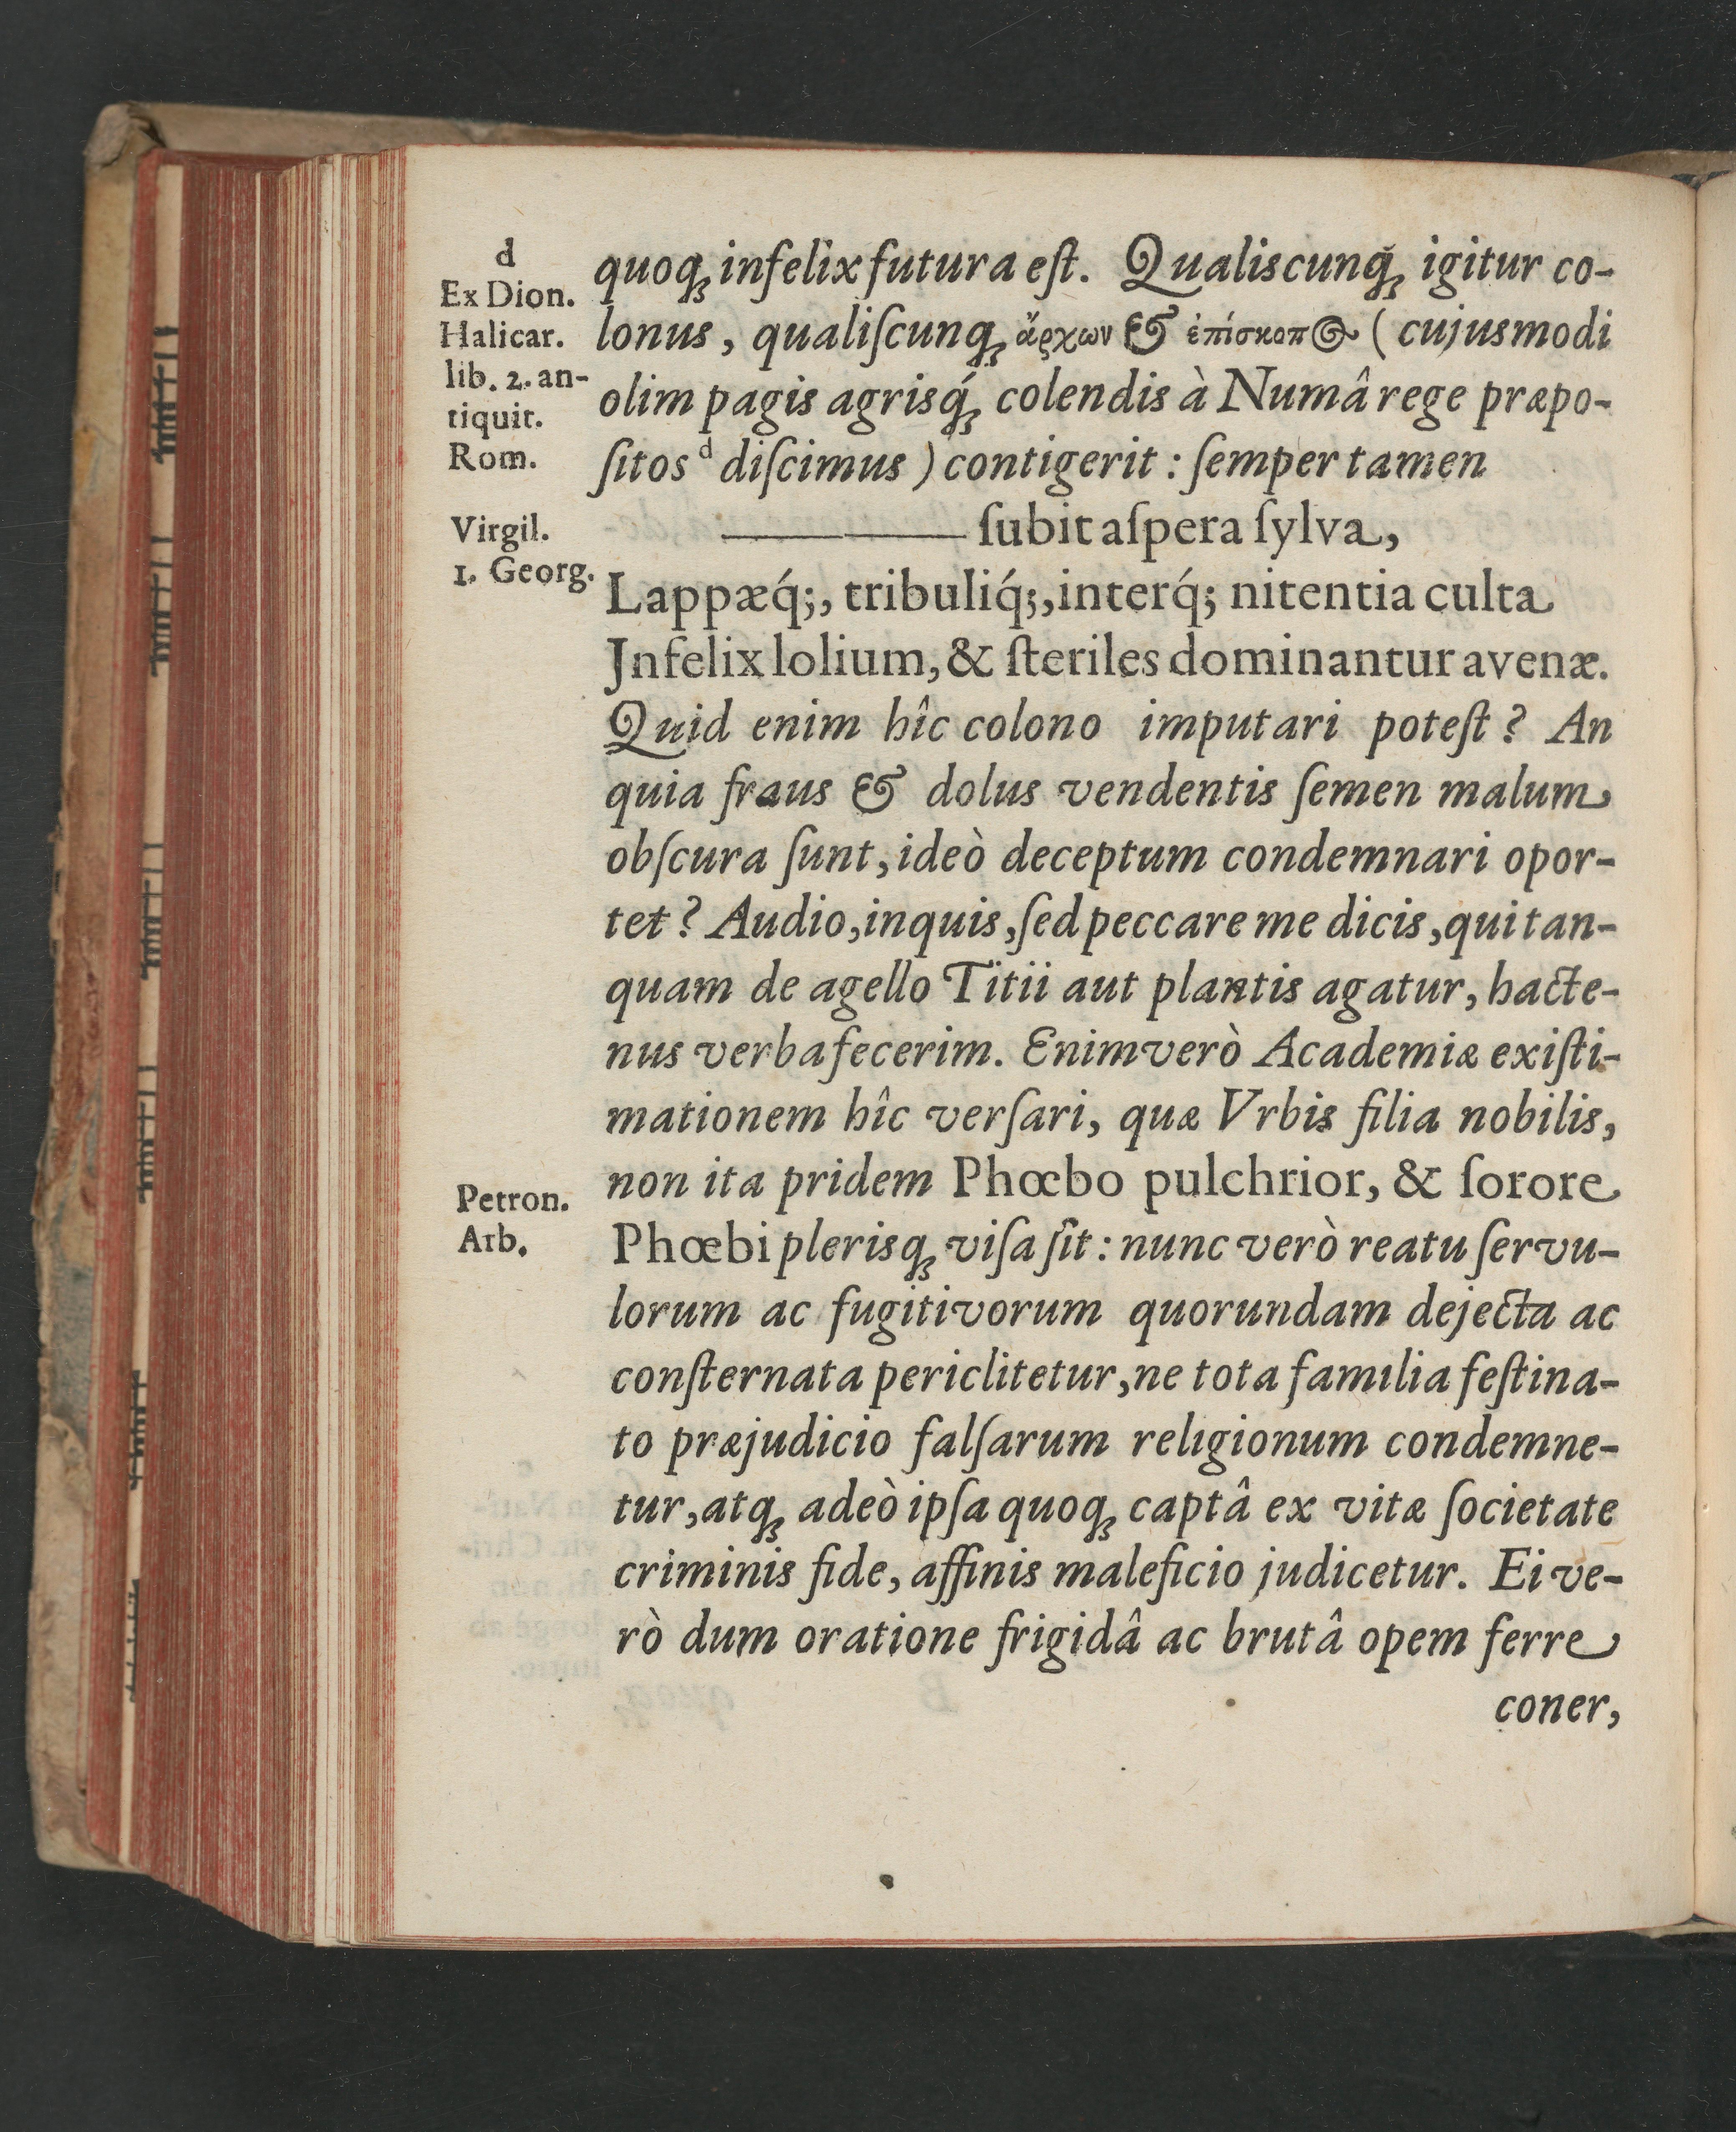 d
Ex Dion.
Halicar.
lib. 2. an-
tiquit.
Rom.
quoq; infelix futura eſt. Qualiscunq́; igitur co-
lonus, qualiſcunq; ἄρχων & ἐπίσκοπος (cujusmodi
olim pagis agrisq́; colendis à Numâ rege præpo-
ſitos d diſcimus) contigerit: ſemper tamen
Virgil.
1. Georg.
—— ſubit aſpera ſylva,
Lappæq́;, tribuliq́;, interq́; nitentia culta
Jnfelix lolium, & ſteriles dominantur avenæ.
Quid enim hîc colono imputari poteſt? An
quia fraus & dolus vendentis ſemen malum
obſcura ſunt, ideò deceptum condemnari opor-
tet? Audio, inquis, ſed peccare me dicis, qui tan-
quam de agello Titii aut plantis agatur, hacte-
nus verba fecerim. Enimverò Academiæ exiſti-
mationem hîc verſari, quæ Vrbis filia nobilis,
non ita pridem Phœbo pulchrior, & ſorore
Petron.
Arb.
Phœbi plerisq; viſa ſit: nunc verò reatu ſervu-
lorum ac fugitivorum quorundam dejecta ac
conſternata periclitetur, ne tota familia feſtina-
to præjudicio falſarum religionum condemne-
tur, atq; adeò ipſa quoq; captâ ex vitæ ſocietate
criminis fide, affinis maleficio judicetur. Ei ve-
rò dum oratione frigidâ ac brutâ opem ferre
coner,